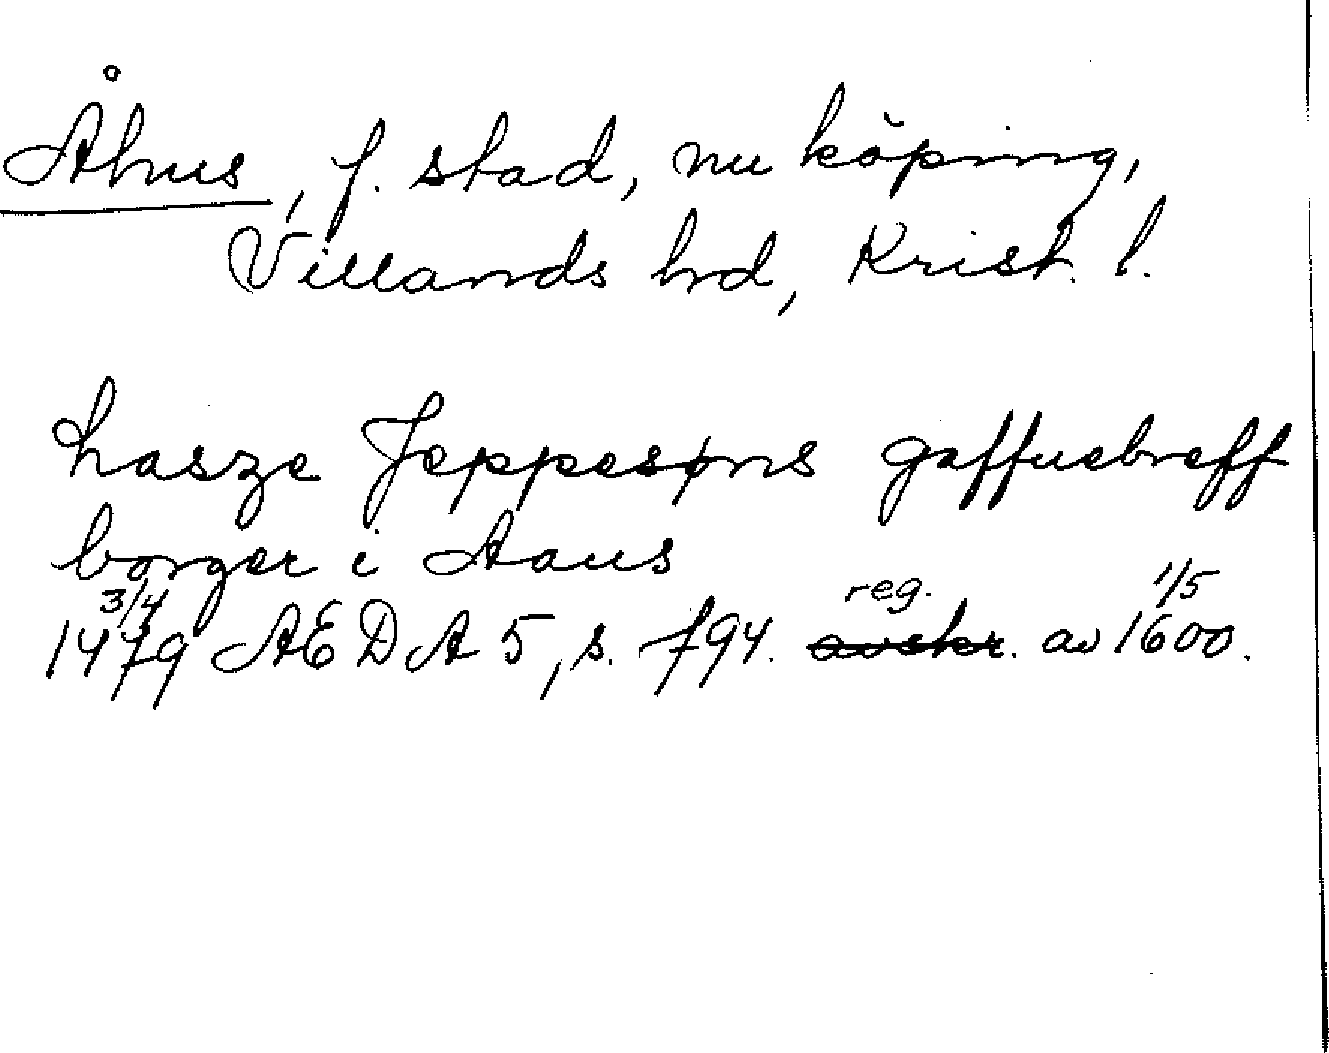 Åhus, f. stad, nu köping,
Villands hd, Krist. l.
hasze Jeppesøns gaffuebreff
borger i Aaus
3/4 reg. 1/5
1479 AEDA 5, s. 794. avskr. av 1600.